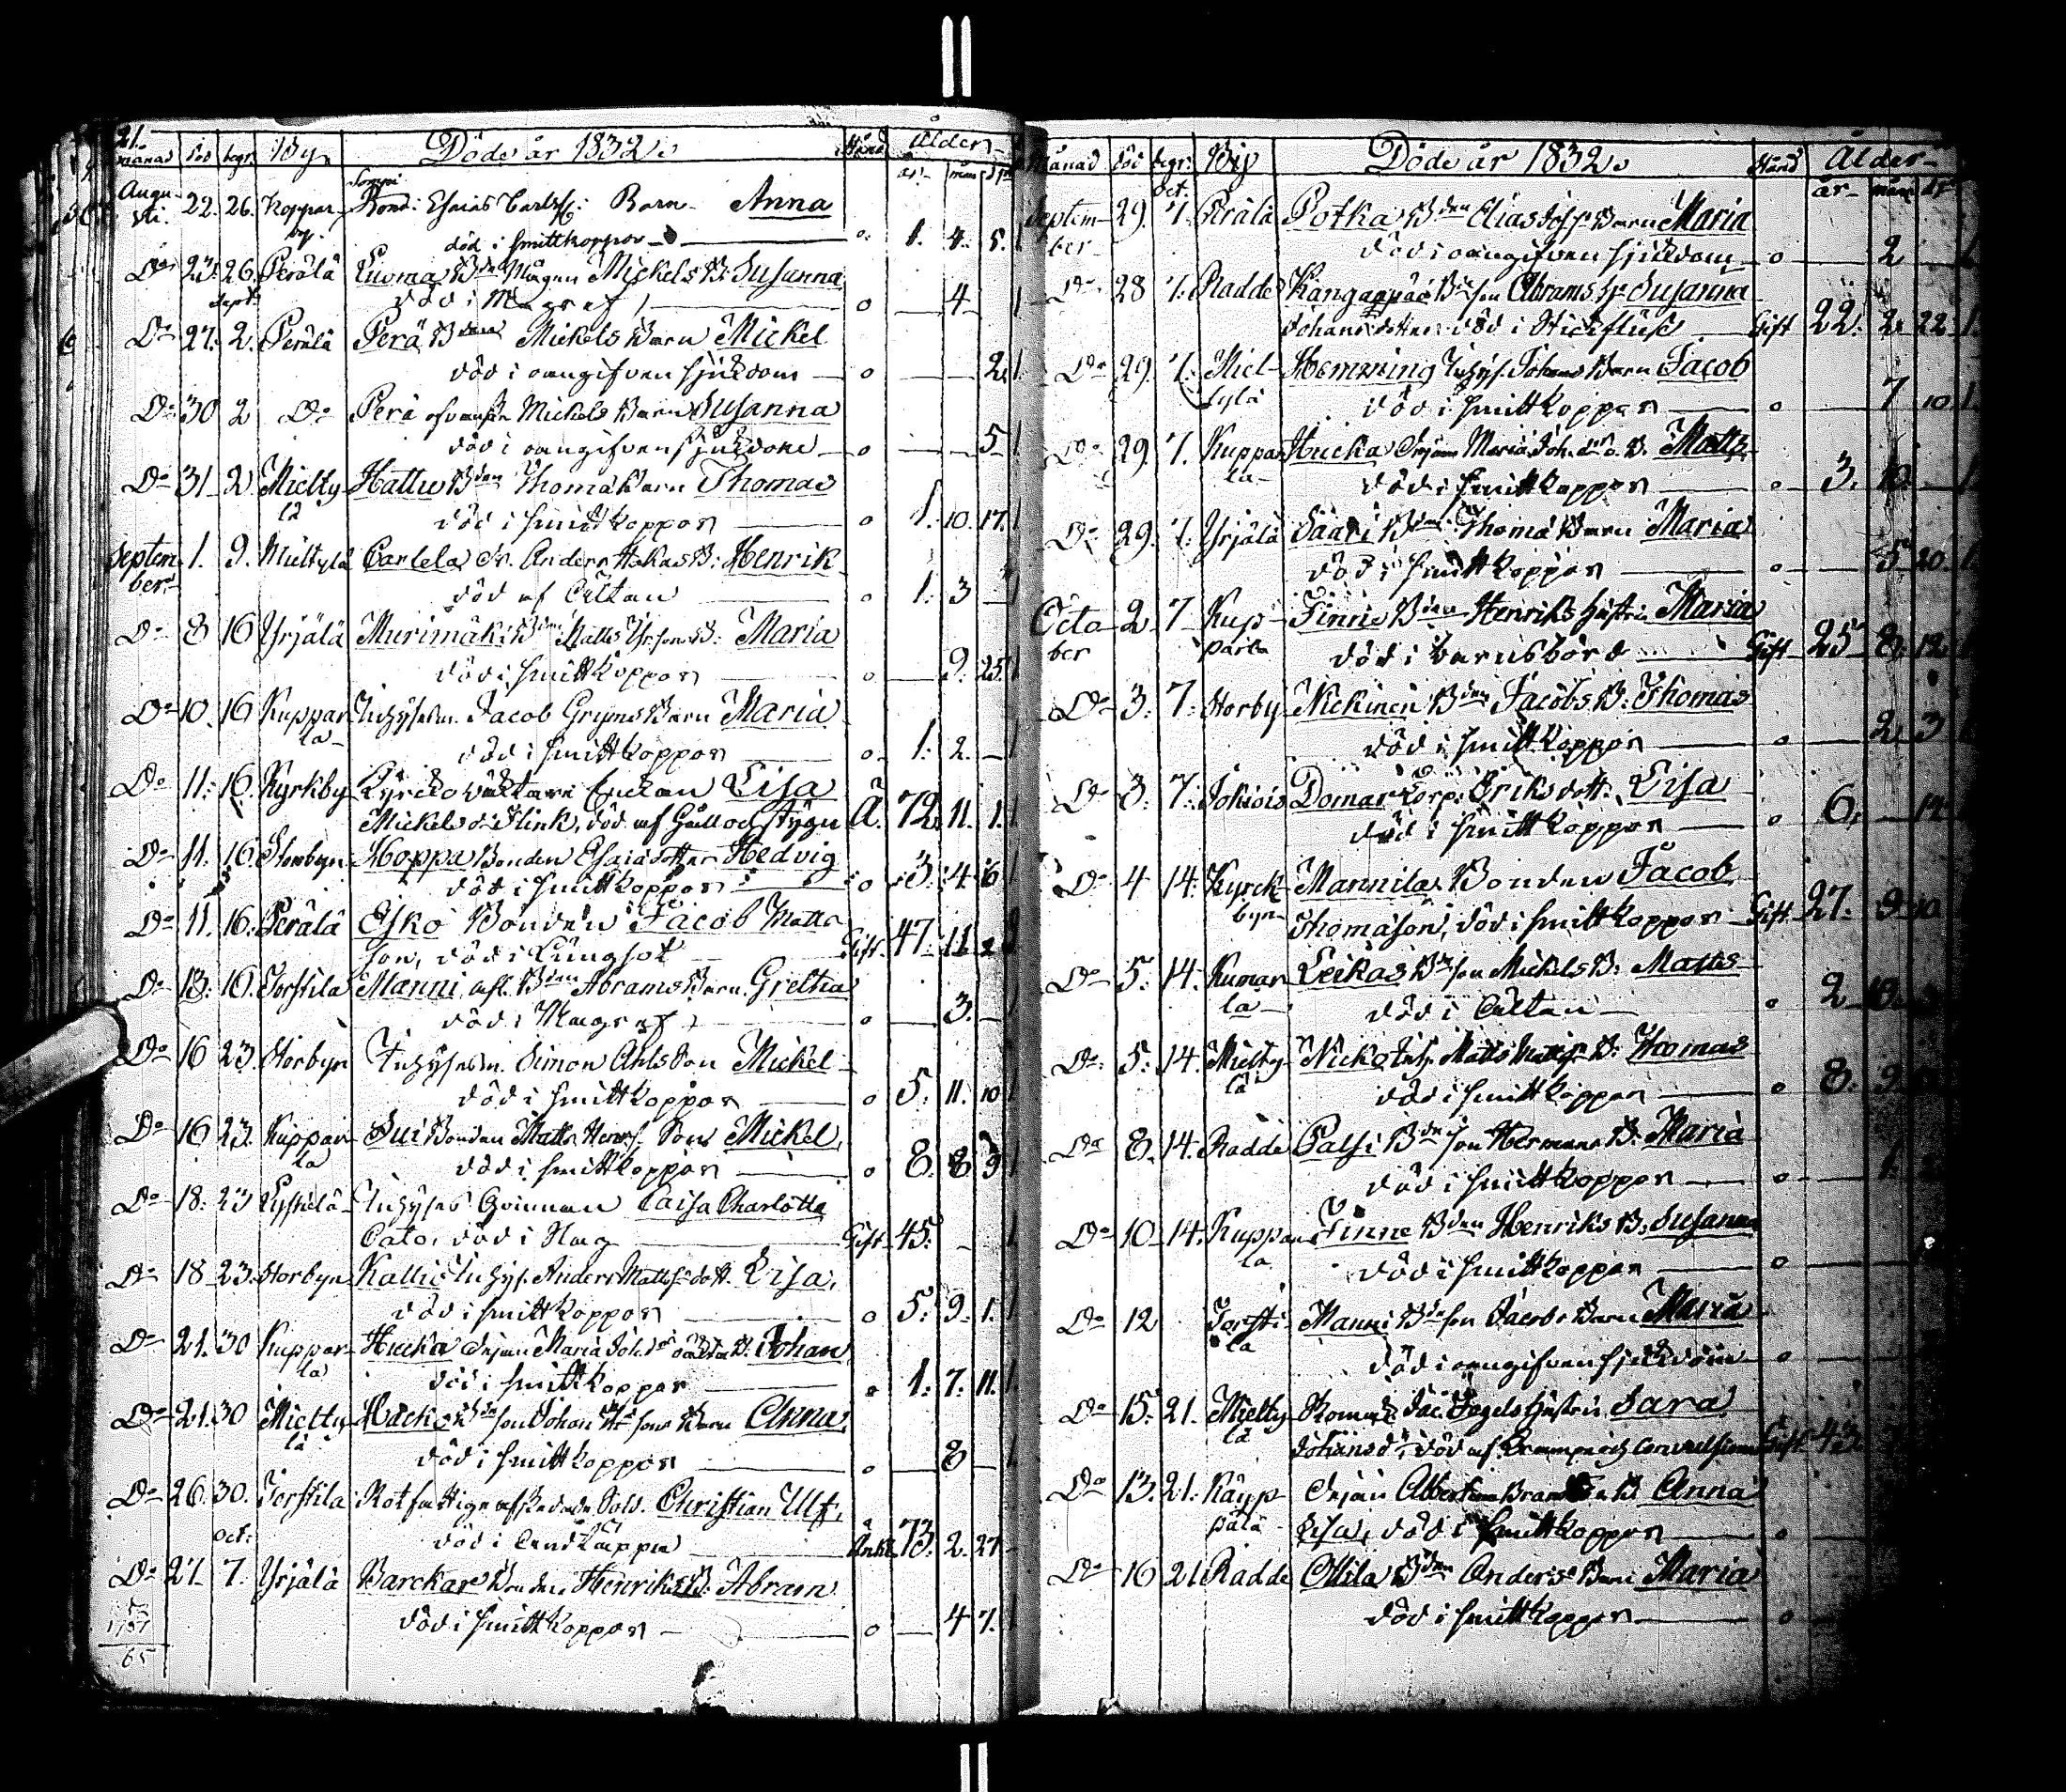 21.
månad död begr. By Döde år 1832. Stånd Ålder
år mån dar
Augusti. 22. 26. Koppar Bond: Esaias Carlss: Barn Anna
by. död i smittkoppor o. 1. 4. 5.
Do 23. 26. Perälä Luoma Bden Mågen Mickels B: Susanna
Sept. död i Magref o 4
Do 27. 2. Perälä Perä Bden Mickels Barn Mickel
död i oangifven sjukdom o 2.
Do 30 2 Do Perä ofvansn Mickels Barn Susanna
död i oangifven sjukdom o 5
Do 31 2 Mielty Hattu Bden Thomas Barn Thomas
lä död i smittkoppor o 1. 10. 17.
Septem 1. 9. Mieltylä Carlela Anders B: Henrik
ber. död af o 1. 3
Do 8 16 Yrjälä Murimäki Bden Matts B: Maria
död i smittkoppor o 9. 25.
Do 10. 16 Kuppar Inhysesm. Jacob Gryns Barn Maria
la död i smittkoppor o 1. 2.
Do 11. 16. Kyrkby Kyrcko väktare Enckan Lisa
Mickelsd: Flink, död af Håll och stÿgn Ä. 72. 11. 1.
Do 11. 16. Storbyn Hoppa Bonden Esaias dotter Hedvig
död i smittkoppor o 3. 4. 16
Do 11. 16. Perälä Esko Bonden Jacob Matts
son, död i Lungsot Gift 47. 11 2
Do 13. 16. Torstila Manni afl. Bden Abrams Barn Gretha
död i Magref o 3.
Do 16 23. Storbyn Inhysesm. Simon Ahls Son Mickel
död i smittkoppor o 5. 11. 10
Do 16 23. Kuppar Sui Bonden Matts Henrs. Son Mickel
la död i smittkoppor o 8. 8 9
Do 18. 23 Inhyses Qvinnan Caisa Charlotta
Cato, död i Gift 45.
Do 18 23. Storbyn Kallio Inhys. Anders Matts: dott. Lisa,
död i smittkoppor o 5. 9. 1.
Do 21. 30 Kuppar Hucka Maria Joh.dr Johan
la död i smittkoppor o 1. 7. 11.
Do 21. 30 Mielty Backo Bden son Johan sons Barn Anna
lä död i smittkoppor o 8
Do 26. 30. Torstila Rotfattige afskedade Sold. Christian Ulf,
Oct: död i Enkl. 73. 2. 27
Do 27 7. Yrjälä Barckar Bonden Henriks B: Abram
död i smittkoppor o 4 7.
65
Månad död begr. By Döde år 1832. Stånd Ålder
oct. år mån dr
Septem 29. 7. Perälä Potka Bden Elias Barn Maria
ber död i oangifven sjukdom o 2
Do 28 7. Radde Bden son Abrams H: Susanna
Johansdotter död i Gift 22. 2. 22.
Do 29. 7. Miel Hemming Inhys. Johans Barn Jacob
tylä död i smittkoppor o 7 10.
Do 29. 7. Kuppar Hucka Maria Joh. B. Matts
la död i smittkoppor o 3. 10
Do 29. 7. Yrjälä Saari Bden Thomas Barn Maria
död i smittkoppor o 5 20.
Octo 2 7 Kup Finne Bden Henriks hustru Maria
ber parla död i barnsbörd Gift 25 8. 12.
Do 3. 7. Storby Nickinen Bden Jacobs B: Thomas
död i smittkoppor o 2. 3
Do 3. 7. Jokiois Domar Corp: Eriks dott. Lisa
död i smittkoppor o 6. 14
Do 4 14. Kyrck Mannila Bonden Jacob
byn Thomason, död i smittkoppor Gift 27. 9 10
Do 5. 14. Kumar Leikas Bden son Mickels B: Matts
la död i o 2
Do 5. 14. Mielty Nicko Inh. Matts B: Thomas
lä död i smittkoppor o 8. 9
Do 8. 14. Radde Palsi Bden son Hermans B: Maria
död i smittkoppor o 1.
Do 10 14. Kuppar Finne Bden Henriks B: Susanna
la död i smittkoppor o
Do 12 Torsti Manni Bden son Jacobs Barn Maria
la död i oangifven sjukdom o
Do 15. 21. Mielty Jac. Fogels hustru Sara
lä Johansd:r, död af Krampe och Convulsioner Gift 43
Do 13. 21. Käyp Anna
pälä Lisa, död i smittkoppor o
Do 16 21. Radde Ollila Bden Anders Barn Maria
död i smittkoppor o